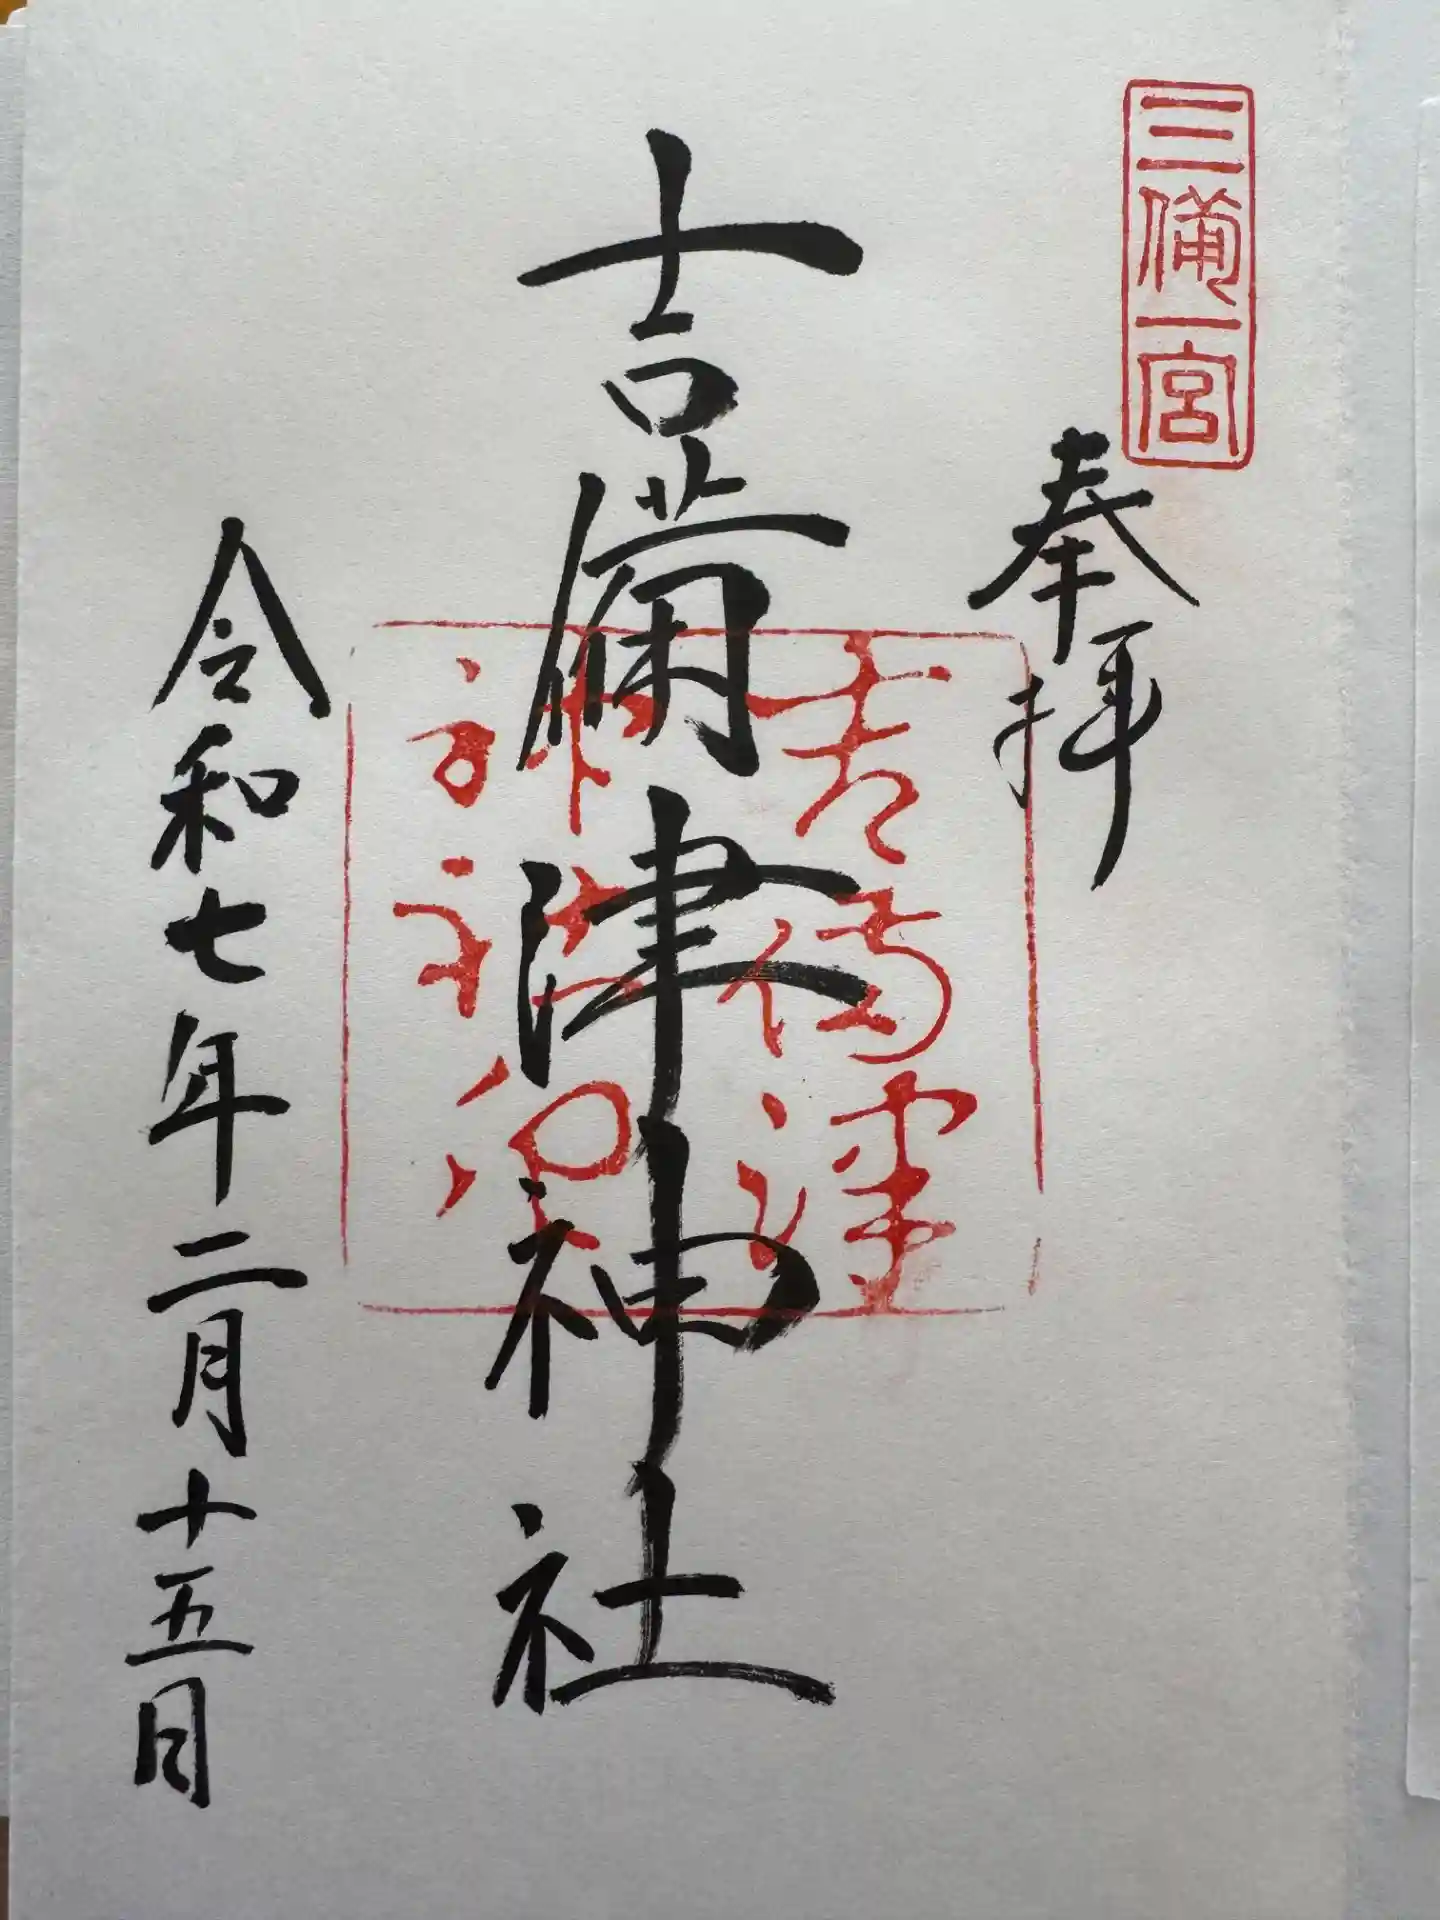 三備一宮
奉拝
吉備津神社
吉備津
神社
令和七年二月十五日